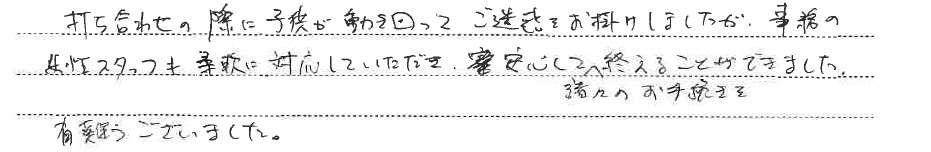 打ち合わせの際に子供が動き回ってご迷惑をお掛けしましたが、事務の
女性スタッフも柔軟に対応していただき、安心して終えることができました。
諸々のお手続きを
有難うございました。